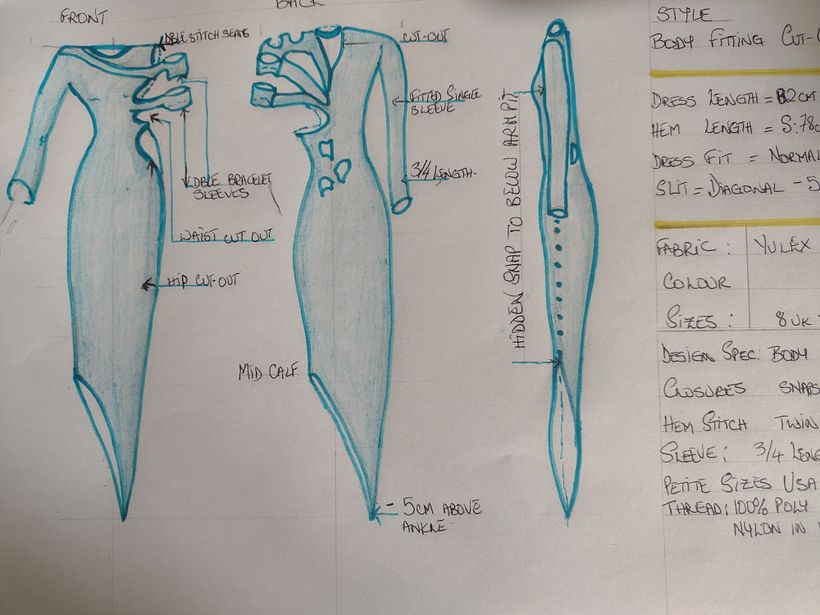 FRONT
BACK
DBLE STITCH SEAMS
CUT-OUT
FITTED SINGLE
SLEEVE
3/4 LENGTH
DBLE BRACELET
SLEEVES
WAIST CUT OUT
HIP CUT-OUT
MID CALF
- 5CM ABOVE
ANKLE
HIDDEN SNAP TO BELOW ARMPIT
STYLE
BODY FITTING CUT-
DRESS LENGTH =
HEM LENGTH = S:78
DRESS FIT = NORMAL
SLIT = DIAGONAL - 5
FABRIC: YULEX
COLOUR
SIZES: 8 UK -
DESIGN SPEC: BODY
CLOSURES SNAPS
HEM STITCH TWIN
SLEEVE: 3/4 LENG
PETITE SIZES USA
THREAD: 100% POLY
NYLON IN